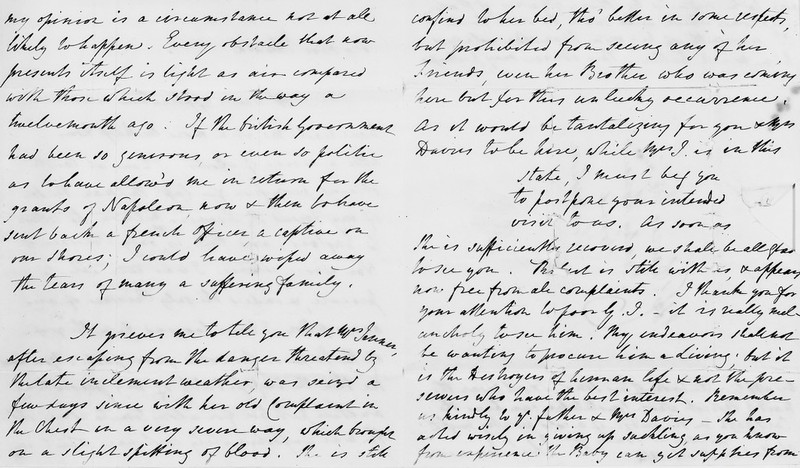 my opinion is a circumstance not at all
likely to happen. Every obstacle that now
presents itself is light as air compared
with those which stood in the way a
twelvemonth ago. If the british Government
had been so generous or even so politic
as to have allow'd me in return for the
grants of Napoleon now & then to have
sent back a french officer a captive on
our shores; I could have wiped away
the tears of many a suffering family.
It grieves me to tell you that Mrs Jenner,
after escaping from the danger threatend by
the late inclement weather, was seized a
few days since with her old Complaint in
the Chest in a very severe way, which brought
on a slight spitting of blood. She is still
confined to her bed, tho' better in some respects,
but prohibited from seeing any of her
friends, even her Brother who was coming
here but for this unlucky occurrence.
As it would be tantalizing for you & Mrs
Davies to be here, while Mrs J. is in this
state, I must beg you
to postpone your intended
visit to us. As soon as
she is sufficiently recoverd, we shall be all glad
to see you. is still with us, & appears
now free from all complaints. I thank you for
your attention to poor G. J. - it is really mel-
ancholy to see him. My endeavors shall not
be wanting to procure him a living. but it
is the Destroyers of human life & not the pre-
servers who have the best interest. Remember
us kindly to yr. father & Mrs Davies - She has
acted wisely in giving up suckling as you know
from experience the Baby can get supplies from